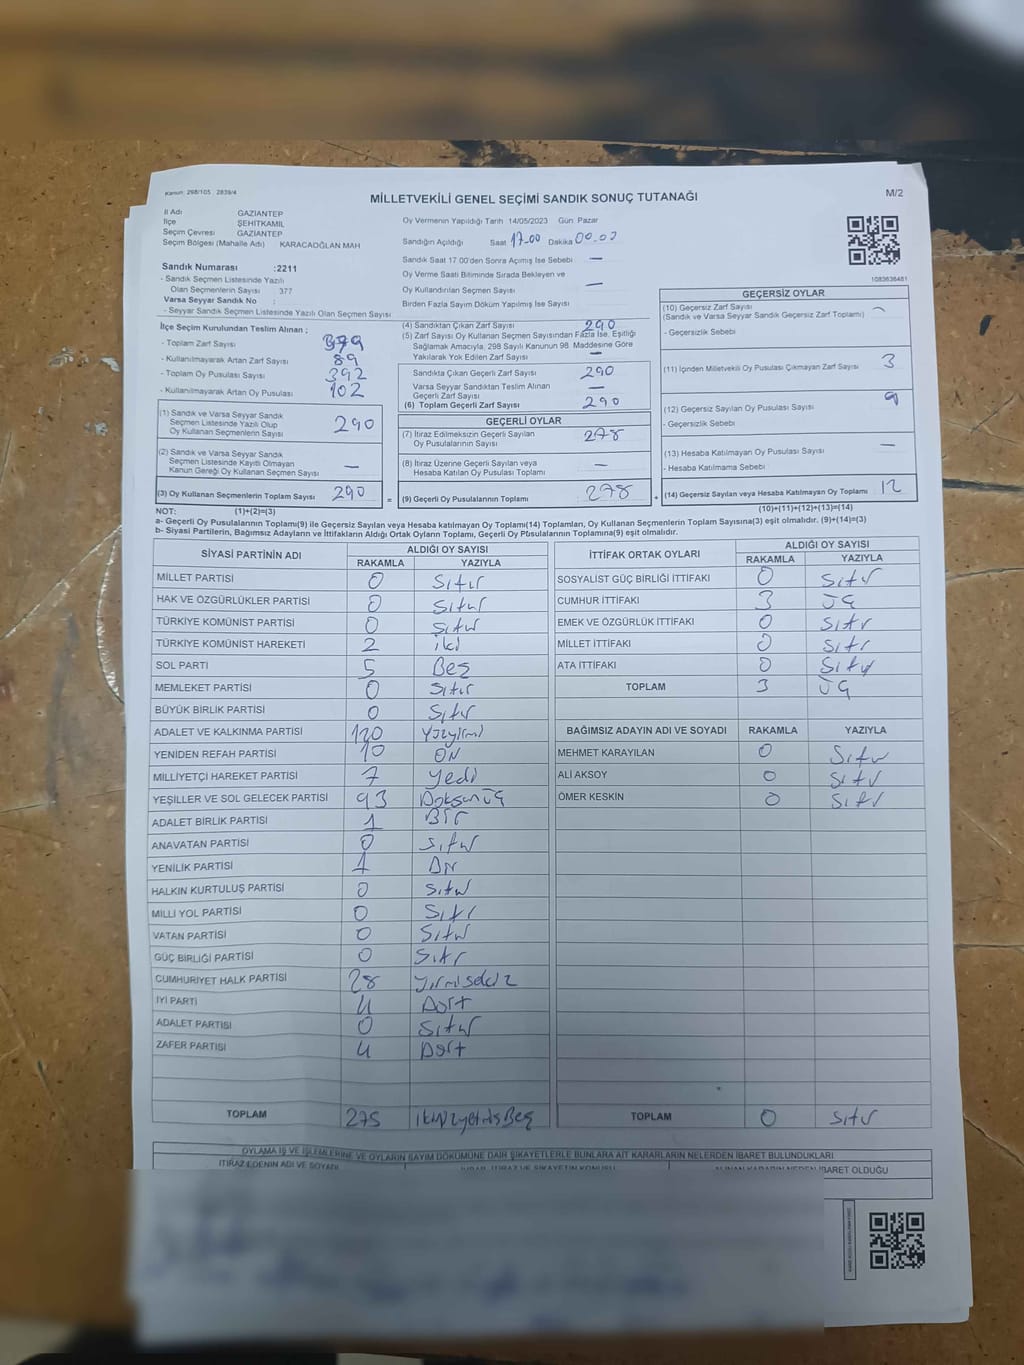 Kanun: 298/105 , 2839/4
MİLLETVEKİLİ GENEL SEÇİMİ SANDIK SONUÇ TUTANAĞI
M/2
İl Adı GAZİANTEP
İlçe ŞEHİTKAMİL
Seçim Çevresi GAZİANTEP
Seçim Bölgesi (Mahalle Adı) KARACAOĞLAN MAH
Sandık Numarası :2211
- Sandık Seçmen Listesinde Yazılı
Olan Seçmenlerin Sayısı 377
Varsa Seyyar Sandık No :
- Seyyar Sandık Seçmen Listesinde Yazılı Olan Seçmen Sayısı
Oy Vermenin Yapıldığı Tarih 14/05/2023 Gün Pazar
Sandığın Açıldığı Saat 17.00 Dakika
Sandık Saat 17:00'den Sonra Açımış İse Sebebi —
Oy Verme Saati Bitiminde Sırada Bekleyen ve
Oy Kullandırılan Seçmen Sayısı —
Birden Fazla Sayım Döküm Yapılmış İse Sayısı
1083636461
İlçe Seçim Kurulundan Teslim Alınan ;
- Toplam Zarf Sayısı 379
- Kullanılmayarak Artan Zarf Sayısı 89
- Toplam Oy Pusulası Sayısı 392
- Kullanılmayarak Artan Oy Pusulası 102
(1) Sandık ve Varsa Seyyar Sandık
Seçmen Listesinde Yazılı Olup
Oy Kullanan Seçmenlerin Sayısı 290
(2) Sandık ve Varsa Seyyar Sandık
Seçmen Listesinde Kayıtlı Olmayan
Kanun Gereği Oy Kullanan Seçmen Sayısı —
(3) Oy Kullanan Seçmenlerin Toplam Sayısı 290
(4) Sandıktan Çıkan Zarf Sayısı 290
(5) Zarf Sayısı Oy Kullanan Seçmen Sayısından Fazla İse, Eşitliği
Sağlamak Amacıyla, 298 Sayılı Kanunun 98. Maddesine Göre
Yakılarak Yok Edilen Zarf Sayısı —
Sandıkta Çıkan Geçerli Zarf Sayısı 290
Varsa Seyyar Sandıktan Teslim Alınan
Geçerli Zarf Sayısı —
(6) Toplam Geçerli Zarf Sayısı 290
GEÇERLİ OYLAR
(7) İtiraz Edilmeksizin Geçerli Sayılan
Oy Pusulalarının Sayısı 278
(8) İtiraz Üzerine Geçerli Sayılan veya
Hesaba Katılan Oy Pusulası Toplamı —
= (9) Geçerli Oy Pusulalarının Toplamı : 278
GEÇERSİZ OYLAR
(10) Geçersiz Zarf Sayısı
(Sandık ve Varsa Seyyar Sandık Geçersiz Zarf Toplamı) —
- Geçersizlik Sebebi
(11) İçinden Milletvekili Oy Pusulası Çıkmayan Zarf Sayısı 3
(12) Geçersiz Sayılan Oy Pusulası Sayısı 9
- Geçersizlik Sebebi
(13) Hesaba Katılmayan Oy Pusulası Sayısı —
- Hesaba Katılmama Sebebi
+ (14) Geçersiz Sayılan veya Hesaba Katılmayan Oy Toplamı 12
NOT: (1)+(2)=(3)
(10)+(11)+(12)+(13)=(14)
a- Geçerli Oy Pusulalarının Toplamı(9) ile Geçersiz Sayılan veya Hesaba katılmayan Oy Toplamı(14) Toplamları, Oy Kullanan Seçmenlerin Toplam Sayısına(3) eşit olmalıdır. (9)+(14)=(3)
b- Siyasi Partilerin, Bağımsız Adayların ve İttifakların Aldığı Ortak Oyların Toplamı, Geçerli Oy Pusulalarının Toplamına(9) eşit olmalıdır.
SİYASİ PARTİNİN ADI ALDIĞI OY SAYISI
RAKAMLA YAZIYLA
MİLLET PARTİSİ 0 Sıfır
HAK VE ÖZGÜRLÜKLER PARTİSİ 0 Sıfır
TÜRKİYE KOMÜNİST PARTİSİ 0 Sıfır
TÜRKİYE KOMÜNİST HAREKETİ 2 iki
SOL PARTİ 5 Beş
MEMLEKET PARTİSİ 0 Sıfır
BÜYÜK BİRLİK PARTİSİ 0 Sıfır
ADALET VE KALKINMA PARTİSİ 120 Yüzyirmi
YENİDEN REFAH PARTİSİ 10 ON
MİLLİYETÇİ HAREKET PARTİSİ 7 yedi
YEŞİLLER VE SOL GELECEK PARTİSİ 93 Doksan üç
ADALET BİRLİK PARTİSİ 1 Bir
ANAVATAN PARTİSİ 0 Sıfır
YENİLİK PARTİSİ 1 Bir
HALKIN KURTULUŞ PARTİSİ 0 Sıfır
MİLLİ YOL PARTİSİ 0 Sıfır
VATAN PARTİSİ 0 Sıfır
GÜÇ BİRLİĞİ PARTİSİ 0 Sıfır
CUMHURİYET HALK PARTİSİ 28 yirmisekiz
İYİ PARTİ 4 Dört
ADALET PARTİSİ 0 Sıfır
ZAFER PARTİSİ 4 Dört
TOPLAM 275 ikiyüzyetmişBeş
İTTİFAK ORTAK OYLARI ALDIĞI OY SAYISI
RAKAMLA YAZIYLA
SOSYALİST GÜÇ BİRLİĞİ İTTİFAKI 0 Sıfır
CUMHUR İTTİFAKI 3 üç
EMEK VE ÖZGÜRLÜK İTTİFAKI 0 Sıfır
MİLLET İTTİFAKI 0 Sıfır
ATA İTTİFAKI 0 Sıfır
TOPLAM 3 üç
BAĞIMSIZ ADAYIN ADI VE SOYADI RAKAMLA YAZIYLA
MEHMET KARAYILAN 0 Sıfır
ALİ AKSOY 0 Sıfır
ÖMER KESKİN 0 Sıfır
TOPLAM 0 Sıfır
OYLAMA İŞ VE İŞLEMLERİNE VE OYLARIN SAYIM DÖKÜMÜNE DAİR ŞİKAYETLERLE BUNLARA AİT KARARLARIN NELERDEN İBARET BULUNDUKLARI
İTİRAZ EDENİN ADI VE SOYADI
İBARET OLDUĞU